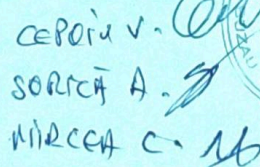 CEPOIU V.
SORICĂ A.
MIRCEA C.